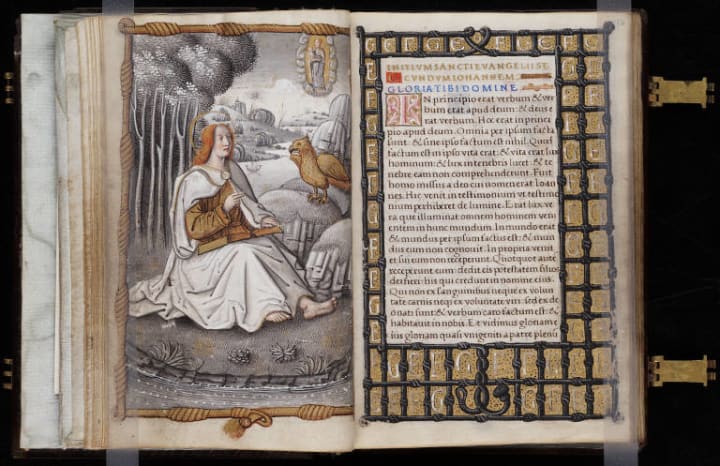 INITIVM SANCTI EVANGELII SE
CVNDVM IOHANNEM
GLORIA TIBI DOMINE
IN principio erat verbum & ver
bum erat apud deum: & deus e
rat verbum. Hoc erat in princi
pio apud deum. Omnia per ipsum facta
sunt: & sine ipso factum est nihil. Quod
factum est in ipso vita erat: & vita erat lux
hominum: & lux in tenebris lucet: & te
nebre eam non comprehenderunt. Fuit
homo missus a deo cui nomen erat Ioan
nes. Hic venit in testimonium vt testimo
nium perhiberet de lumine. Erat lux ve
ra que illuminat omnem hominem veni
entem in hunc mundum. In mundo erat
& mundus per ipsum factus est: & mun
dus eum non cognouit. In propria venit
et sui eum non receperunt. Quotquot autē
receperunt eum: dedit eis potestatem filios
dei fieri: his qui credunt in nomine eius.
Qui non ex sanguinibus neque ex volun
tate carnis neqȝ ex voluntate viri: sed ex de
o nati sunt: & verbum caro factum est: &
habitauit in nobis. Et vidimus gloriam e
ius gloriam quasi vnigeniti a patre plenū